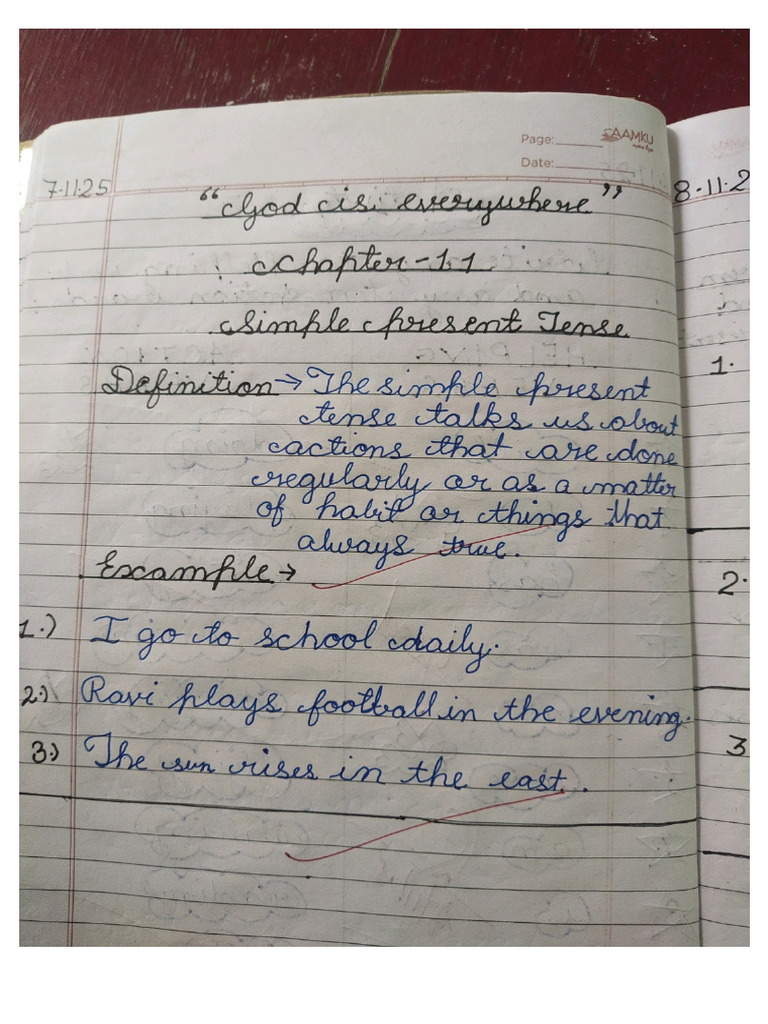 Page:
AAMKU
Date:
7.11.25
8.11.2
"God is everywhere"
Chapter-11
Simple present Tense
Definition→ The simple present
tense talks us about
actions that are done
regularly or as a matter
of habit or things that
always true.
Example→
1.) I go to school daily.
2.) Ravi plays football in the evening.
3.) The sun rises in the east.
1.
2.
3